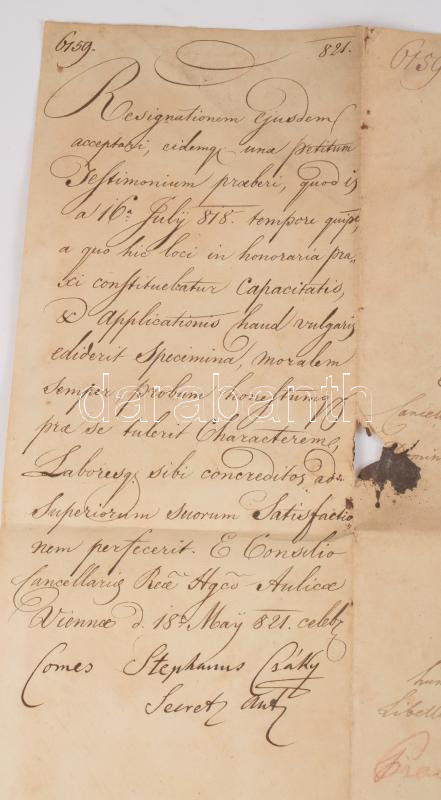 6759. 821.
Resignationem Ejusdem
acceptari, eidemq. una petitum
Testimonium præberi, quod is
a 16a July 818. tempore quippe,
a quo hic loci in honoraria pra=
xi constituebatur Capacitatis,
& Applicationis haud vulgaris
ediderit Specimina, moralem
Semper probum honestumq.
præ se tulerit Characterem,
Laboresq. sibi concreditos ad
Superiorum suorum Satisfactio=
nem perfecerit. E Consilio
Cancellariæ Reæ Hgco Aulicæ
Viennæ d. 18a May 821. celeb.
Comes Stephanus Csáky
Secret. Aut.
6759
Cancell
hun
Libell
Pra
darabanth